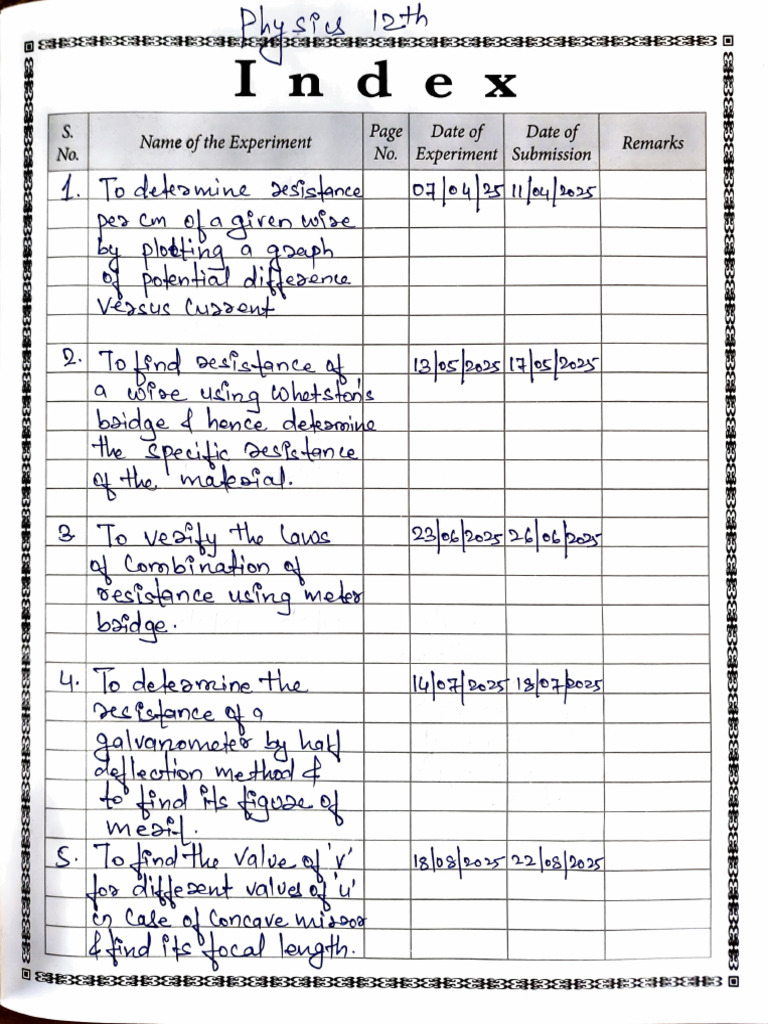 Physics 12th
Index
S. No. Name of the Experiment Page No. Date of Experiment Date of Submission Remarks
1. To determine resistance 07/04/25 11/04/2025
per cm of a given wire
by plotting a graph
of potential difference
versus current
2. To find resistance of 13/05/2025 17/05/2025
a wire using Whetston's
bridge & hence determine
the specific resistance
of the material.
3 To verify the laws 23/06/2025 26/06/2025
of combination of
resistance using meter
bridge.
4. To determine the 14/07/2025 18/07/2025
resistance of a
galvanometer by half
deflection method &
to find its figure of
merit.
5. To find the value of 'v' 18/08/2025 22/08/2025
for different values of 'u'
in case of concave mirror
& find its focal length.